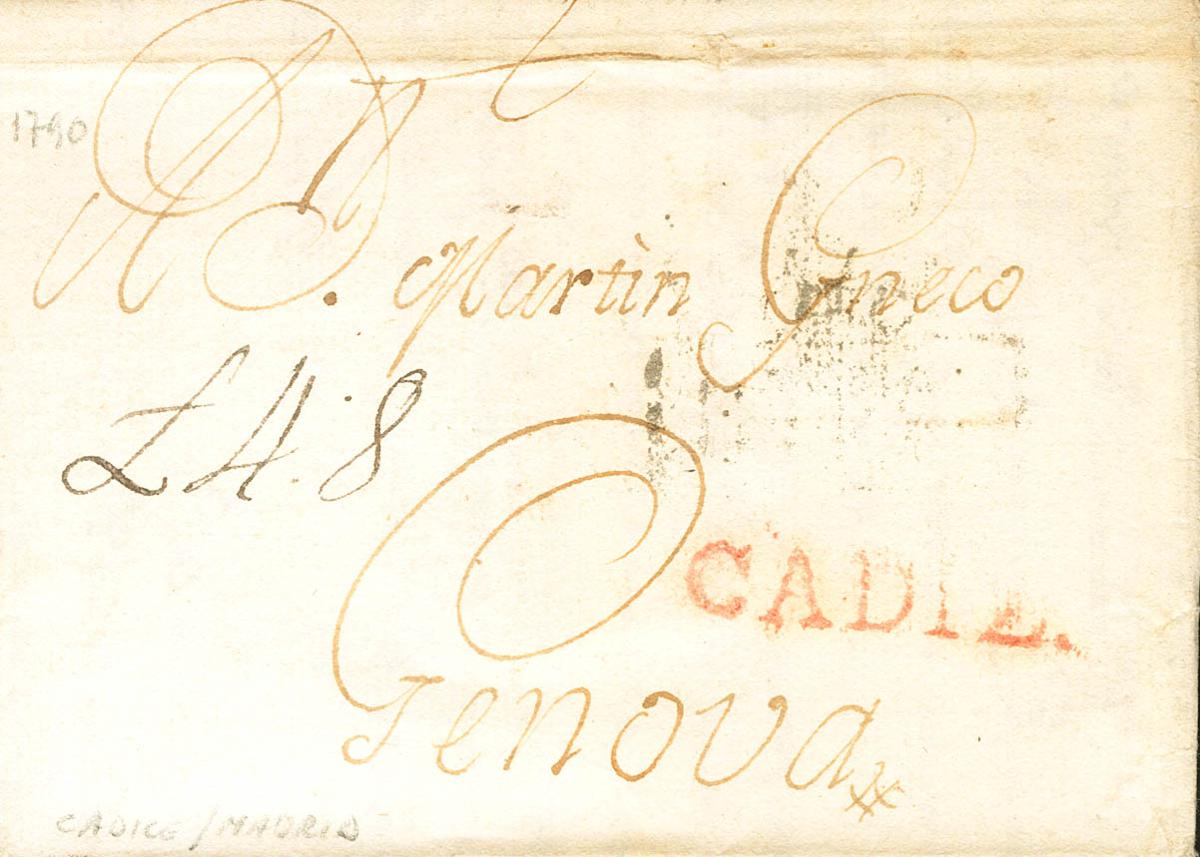 1790
A D. Martin Gneco
£ 4.8
CADIZ.
Genova
CADICE/MADRID